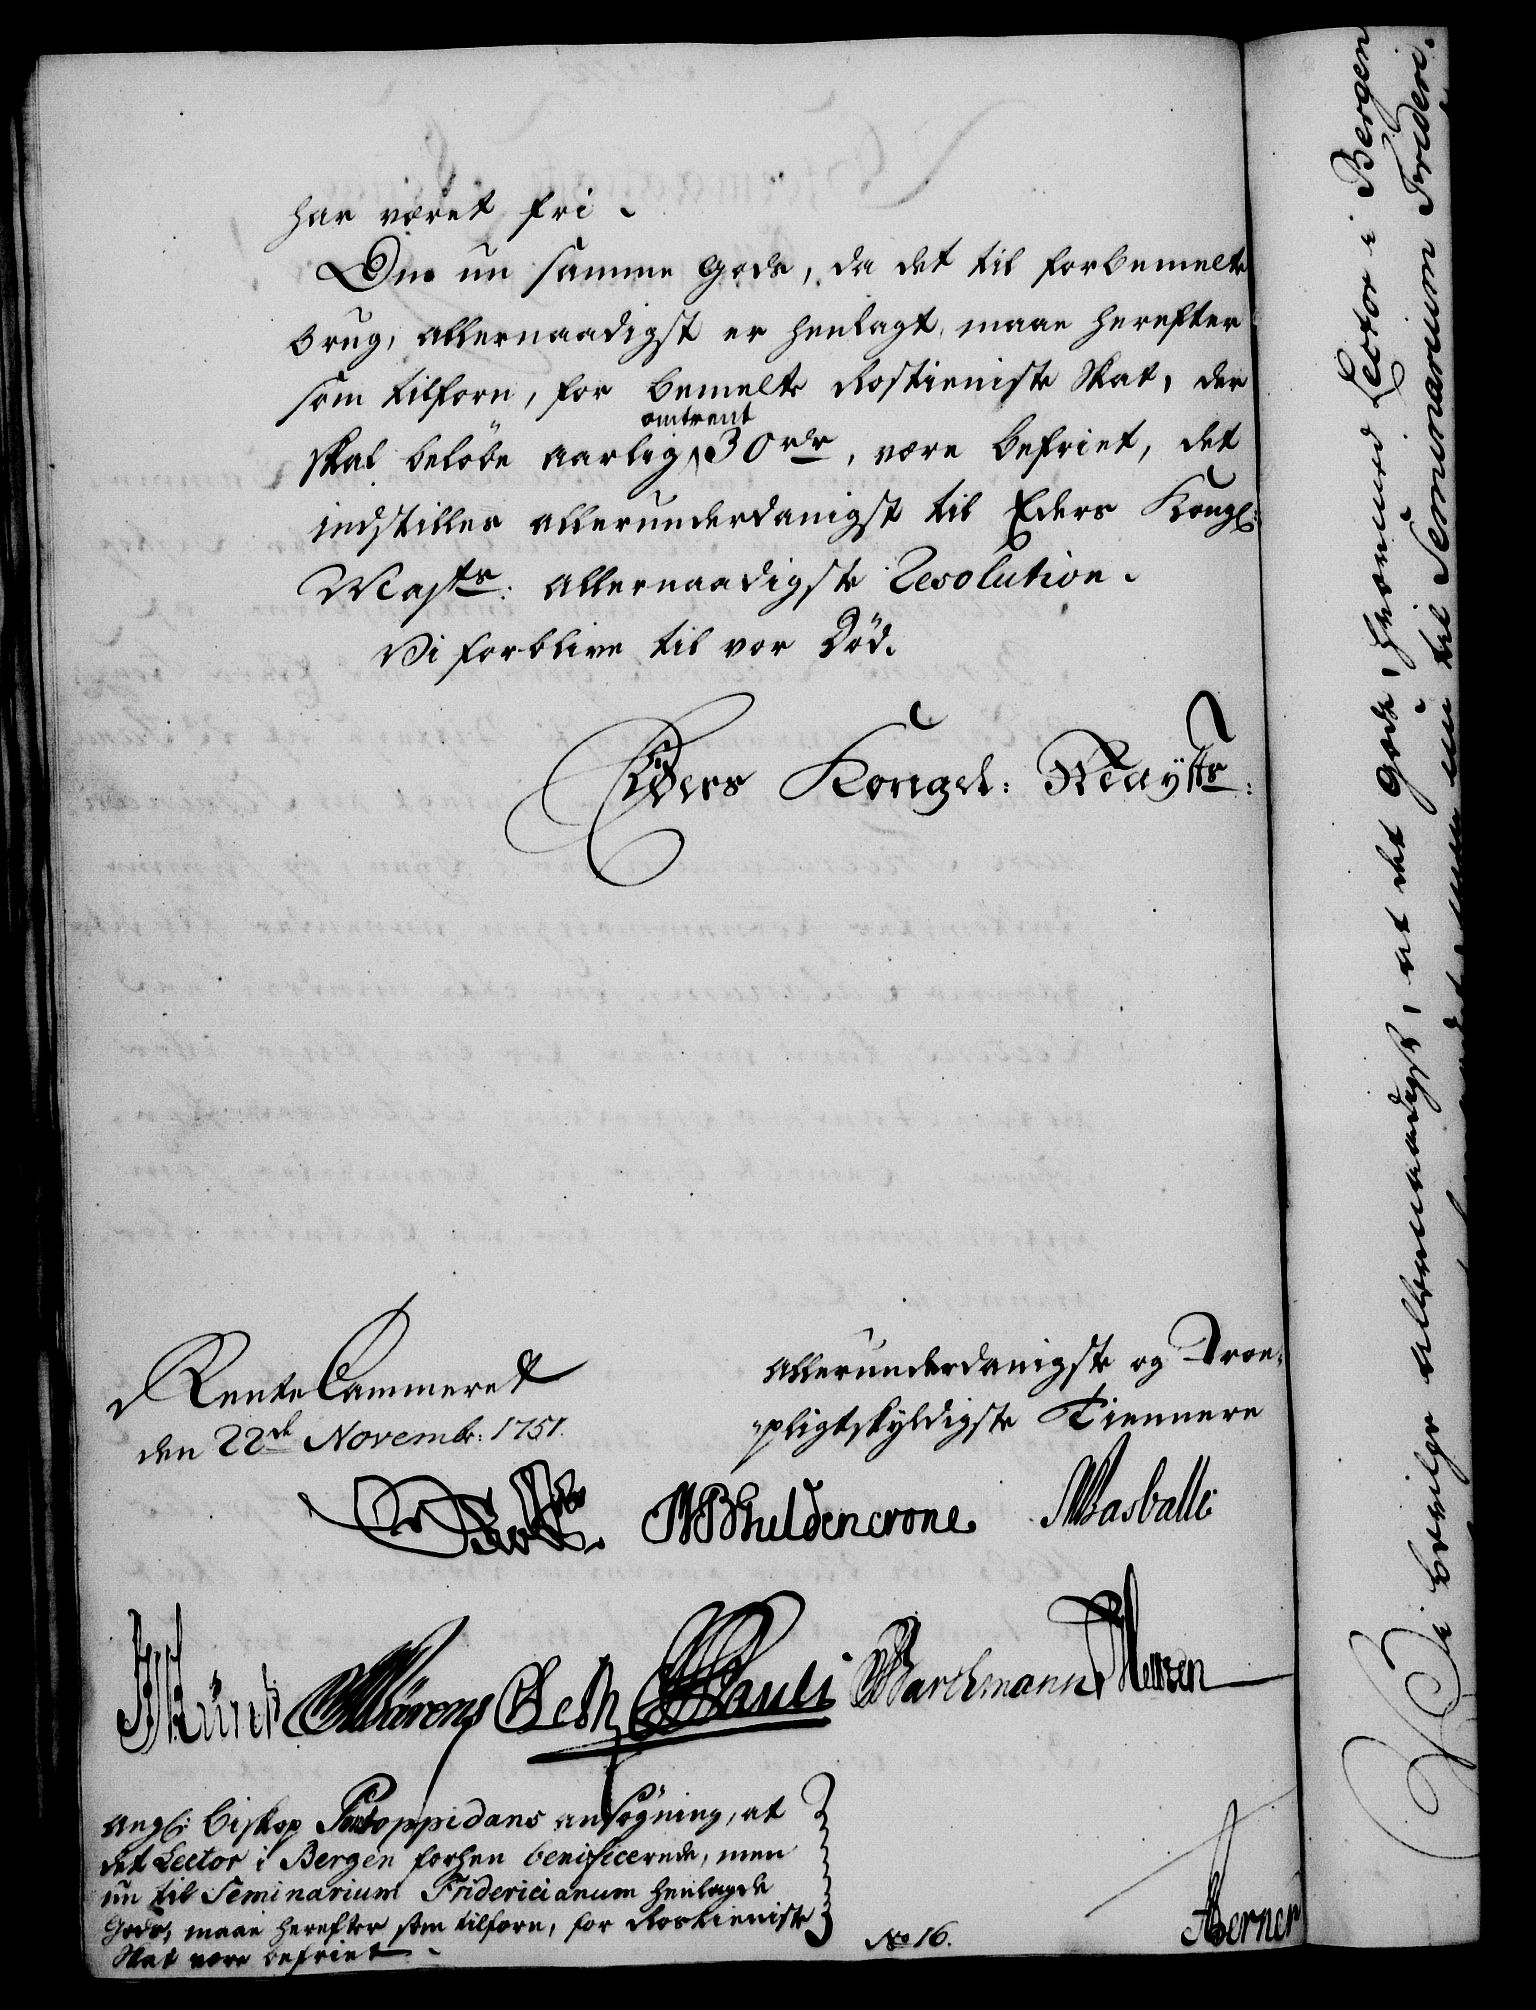 har været fri.
Om nu samme Gods, da det til forbemelte
brug, allernaadigst er henlagt, maae herefter
som tilforn, for bemelte Rostieniste Skat, der
skal beløbe aarlig omtrent 30 rdr, være befriet, det
indstilles allerunderdanigst til Eders Kongl:
Mayts: allernaadigste Resolution.
Vi forblive til vor Død.
Eders Kongel: Mayts:
RenteCammeret
den 22de Novembr: 1751.
allerunderdanigste og Troe-
pligtskyldigste Tiennere
Guldencrone Masballe
Pauli Barchmann
angl: Biskop Pontoppidans ansøgning, at
det Lector i Bergen forhen benificerede, men
nu til Seminarium Fridericianum henlagde
Gods, maae herefter som tilforn, for Rostieniste
Skat være befriet.
No 16.
Berner
Vi bevilge allernaadigst, at det Gods, hvormed Lector i Bergen
nu til Seminarium Frideri-